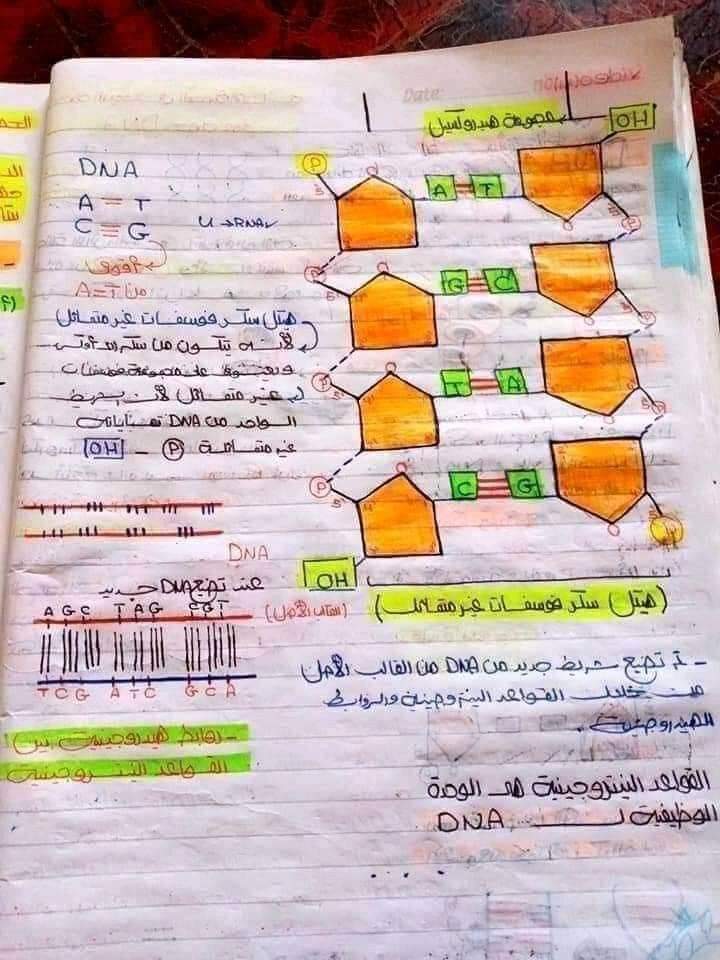 مجموعة هيدروكسيل
OH
DNA
A = T
C ≡ G
U → RNA
أقوى
من A=T
P
A = T
P
P
G ≡ C
P
P
T = A
P
P
C ≡ G
P
OH
هيكل سكر فوسفات غير متماثل
لأنه يتكون من سكر
غير متماثل لأن شريط
الواحد من DNA نهاياته
غير متماثلة P - OH
DNA
عند تصنيع DNA جديد
A G C T A G C G T (القالب الأصل)
T C G A T C G C A
(هيكل) سكر فوسفات غير متماثل
- تم تصنيع شريط جديد من DNA من القالب الأصل
من خلال القواعد النيتروجينية والروابط
الهيدروجينية.
- روابط هيدروجينية بين
القواعد النيتروجينية
القواعد النيتروجينية هي الوحدة
الوظيفية لـ DNA